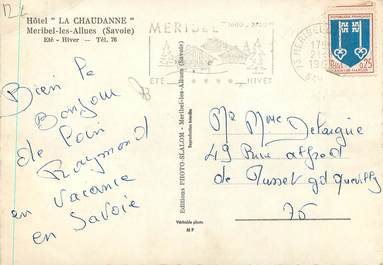 Hôtel "LA CHAUDANNE"
Meribel-les-Allues (Savoie)
Eté - Hiver — Tél. 76
Bien le
Bonjour
de
Raymond
en vacance
en Savoie
Editions PHOTO-SLALOM - Meribel-les-Allues (Savoie)
Reproduction interdite
Véritable photo
M P
MERIBEL
ETE
HIVER
MERIBEL
REPUBLIQUE FRANÇAISE
0,25
Mr Mme Delaigue
49 Rue Alfred
de Musset gd Quevilly
76